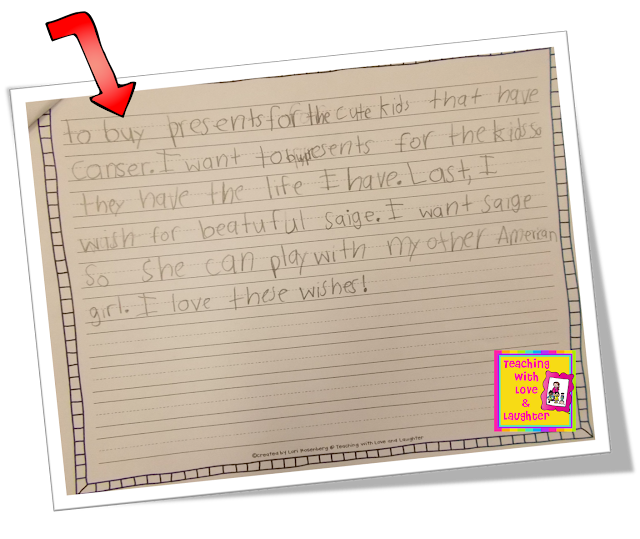 to buy presents for the cute kids that have
canser. I want to buy presents for the kids so
they have the life I have. Last, I
wish for beatuful saige. I want saige
so she can play with my other American
girl. I love these wishes!
Teaching
with
Love
&
Laughter
©Created by Lori Rosenberg @ Teaching with Love and Laughter